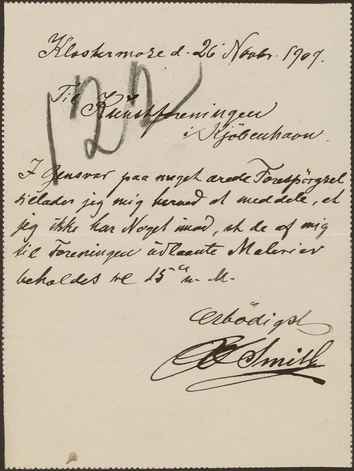 Klostermose d. 26 Novbr. 1907.
122
Til
Kunstforeningen
i Kjöbenhavn.
I Gensvar paa meget ærede Forespörgsel
tillader jeg mig herved at meddele, at
jeg ikke har Noget imod, at de af mig
til Foreningen udlaante Malerier
beholdes til 15 d. M.
Ærbödigst
Smith